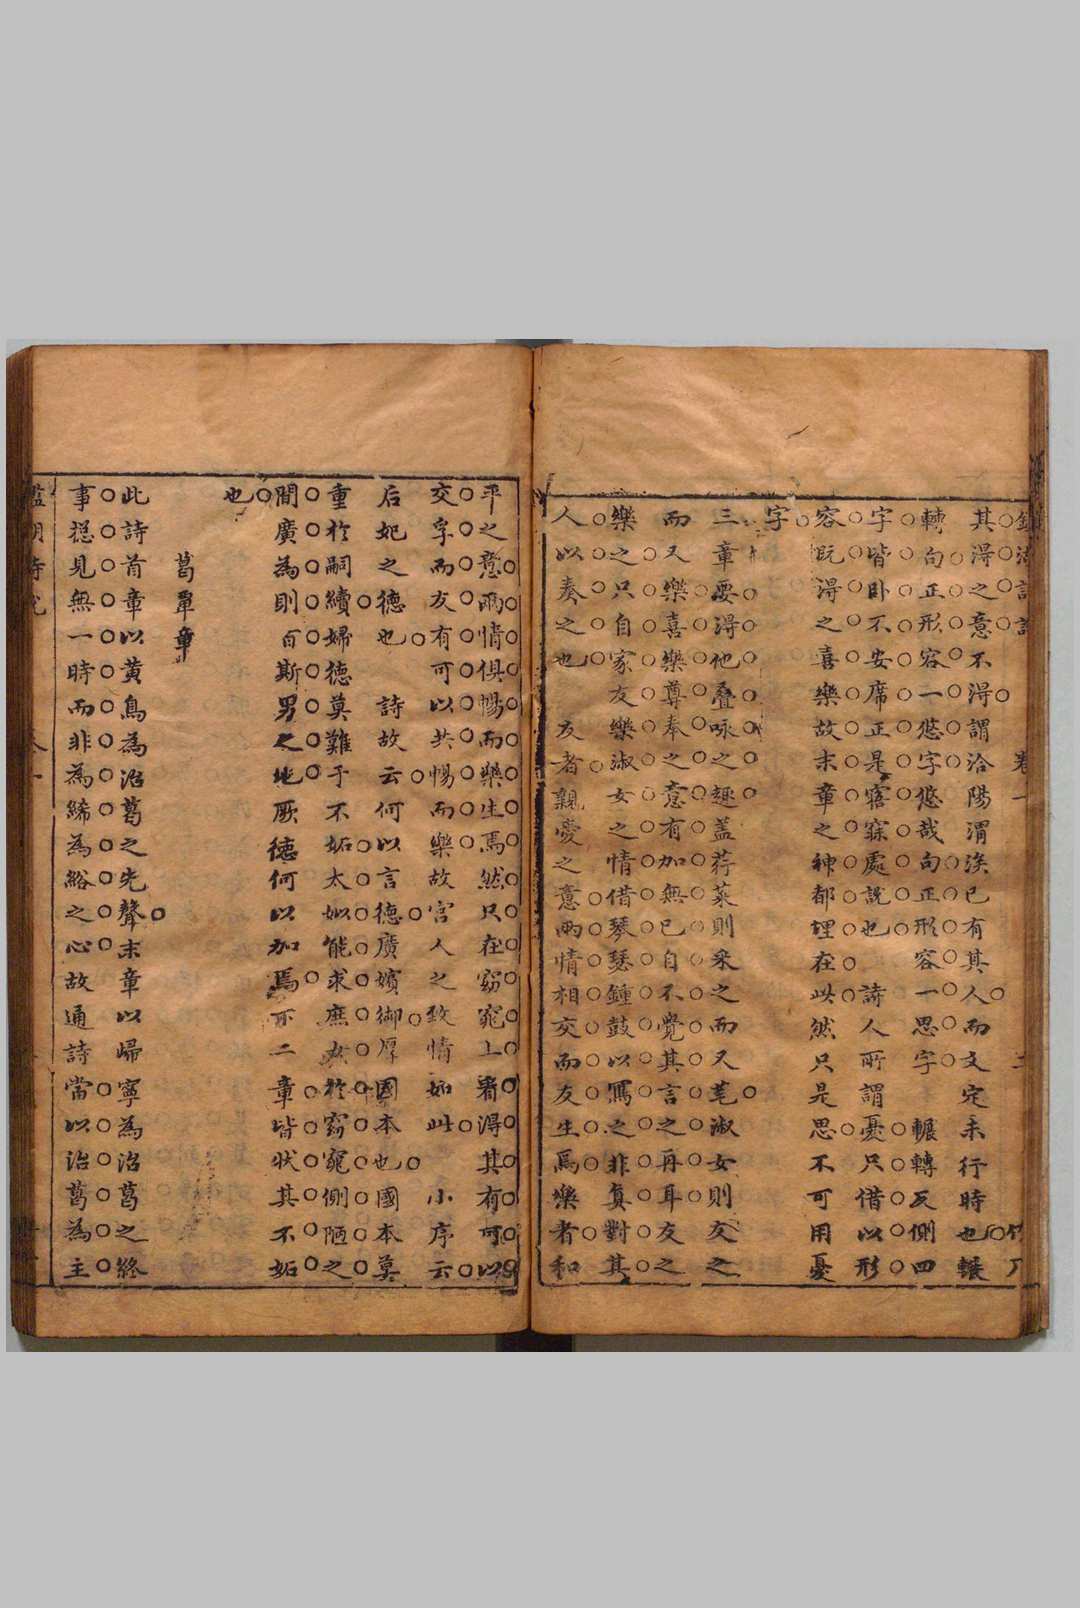 其得之意不得謂洽陽渭涘已有其人而文定未行時也輾
轉句正形容一悠字悠哉句正形容一思字輾轉反側四
字皆臥不安席正是寤寐處說也詩人所謂憂只借以形
容既得之喜樂故末章之神都埋在此然只是思不可用憂
字
三章要得他疊咏之趣蓋荇菜則采之而又芼淑女則友之
而又樂喜樂尊奉之意有加無已自不覺其言之再耳友之
樂之只自家友樂淑女之情借琴瑟鍾鼓以寫之非真對其
人以奏之也友者親愛之意兩情相交而友生焉樂者和
平之意兩情俱暢而樂生焉然只在窈窕上看得其有可以
交孚而友有可以共暢而樂故宮人之致情如此小序云
后妃之德也詩故云何以言德廣嬪御厚國本也國本莫
重於嗣續婦德莫難于不妬太姒能求庶女於窈窕側陋之
間廣為則百斯男之地厥德何以加焉不二章皆狀其不妬
也
葛覃章
此詩首章以黃鳥為治葛之先聲末章以歸寧為治葛之終
事總見無一時而非為絺為綌之心故通詩當以治葛為主
卷一